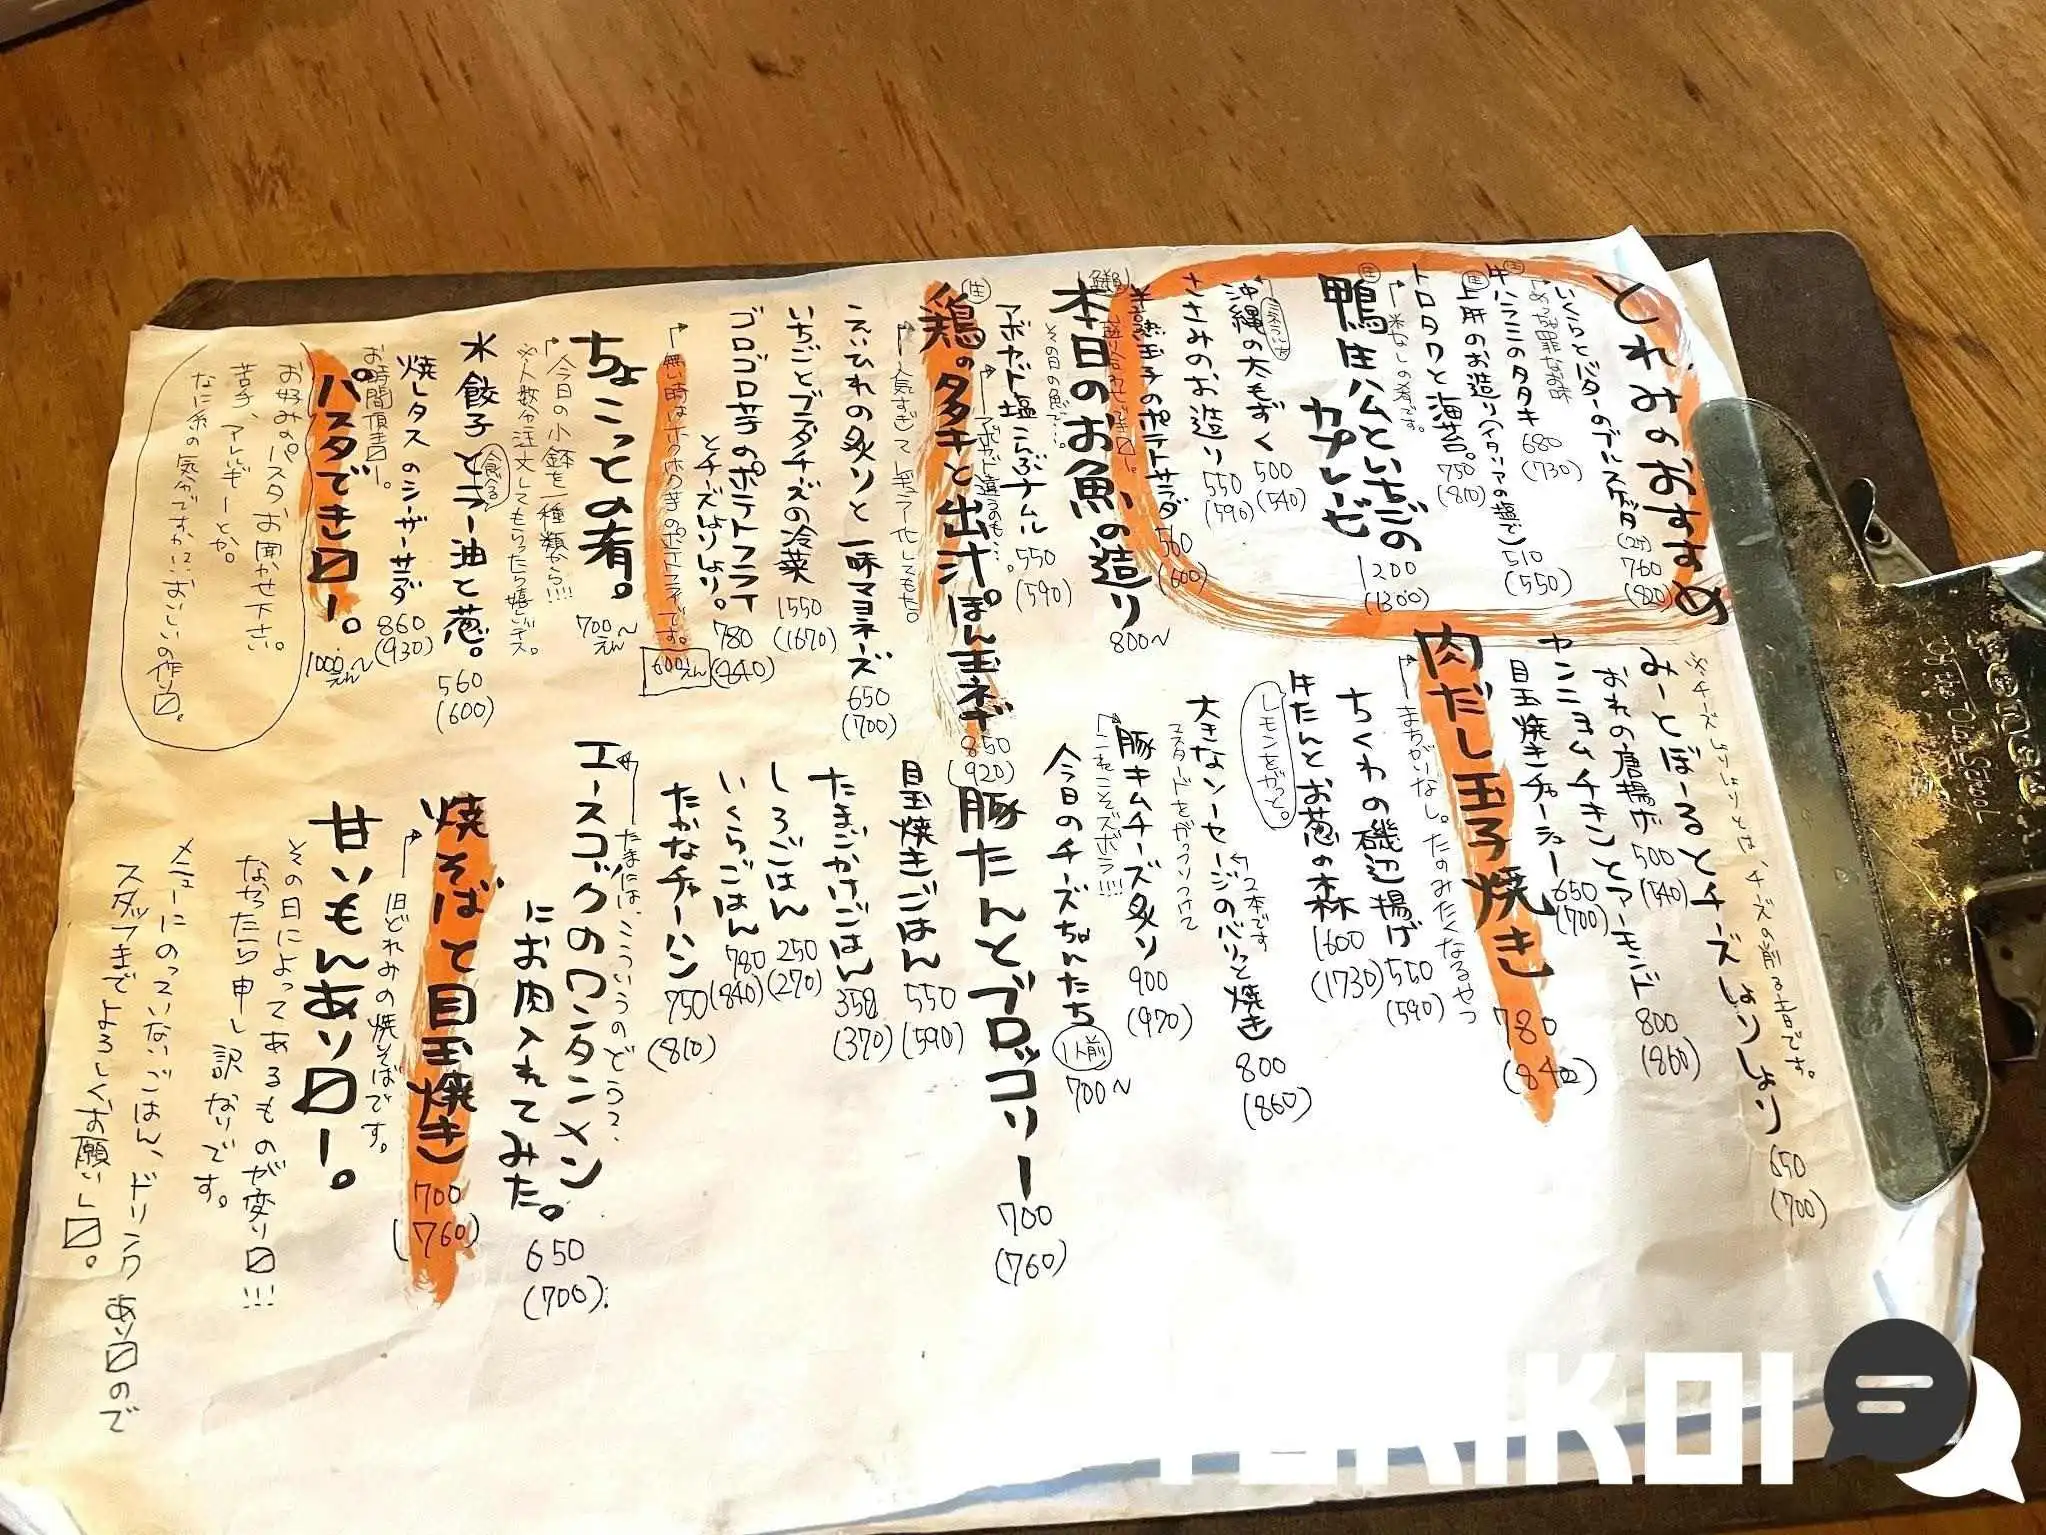 とれみのおすすめ
いくらとバターのブルスケッタ(2ケ) 760 (820)
牛ハラミのタタキ 680 (730)
上肝のお造り(イタリアの塩で) 510 (550)
トロタクと海苔。 750 (810)
米なしの肴です。
鴨生ハムといちごの
カプレーゼ 1200 (1300)
沖縄の太もずく 500 (540)
ささみのお造り 550 (590)
半熟玉子のポテトサラダ 560 (600)
本日のお魚の造り 800〜
その日の魚で…。
アボカド塩こんぶナムル 550 (590)
鶏のタタキと出汁ぽん玉ネギ 850 (920)
人気すぎてレギュラー化してもた。
えいひれの炙りと一味マヨネーズ 650 (700)
いちごとブラータチーズの冷菜 1550 (1670)
ゴロゴロ芋のポテトフライ
とチーズしょりしょり。 780 (840)
無い時はホクホク芋のポテトフライです。 600えん
ちょこっとの肴。 700えん〜
今日の小鉢を一種類から!!!
※人数分注文してもらったら嬉しいデス。
水餃子と食べるラー油と葱。 560 (600)
焼レタスのシーザーサラダ 860 (930)
お時間頂き〼ー。
パスタでき〼ー。 1000えん〜
お好みのパスタお聞かせ下さい。
苦手、アレルギーとか。
なに系の気分ですか?においしいの作り〼。
※チーズしょりしょりとは、チーズの削る音です。
みーとぼーるとチーズしょりしょり 650 (700)
おれの唐揚げ 500 (540)
ヤンニョムチキンとアーモンド 800 (860)
目玉焼きチャーシュー 650 (700)
肉だし玉子焼き 780 (840)
まちがいなし。たのみたくなるやつ
ちくわの磯辺揚げ 550 (590)
牛たんとお葱の森 1600 (1730)
レモンをがっと。
大きなソーセージのバリッと焼き 800 (860)
2本です
マスタードをがっつりつけて
豚キムチーズ炙り 900 (970)
これこそズボラ!!!
今日のチーズちゃんたち 1人前 700〜
豚たんとブロッコリー 700 (760)
目玉焼きごはん 550 (590)
たまごかけごはん 350 (370)
しろごはん 250 (270)
いくらごはん 780 (840)
たかなチャーハン 750 (810)
たまには、こういうのどう?
エースコックのワンタンメン
にお肉入れてみた。 650 (700)
焼そばと目玉焼き 700 (760)
旧どれみの焼そばです。
甘いもんあり〼ー。
その日によってあるものが変り〼!!!
なかったら申し訳ないです。
メニューにのっていないごはん、ドリンクあり〼ので
スタッフまでよろしくお願いし〼。